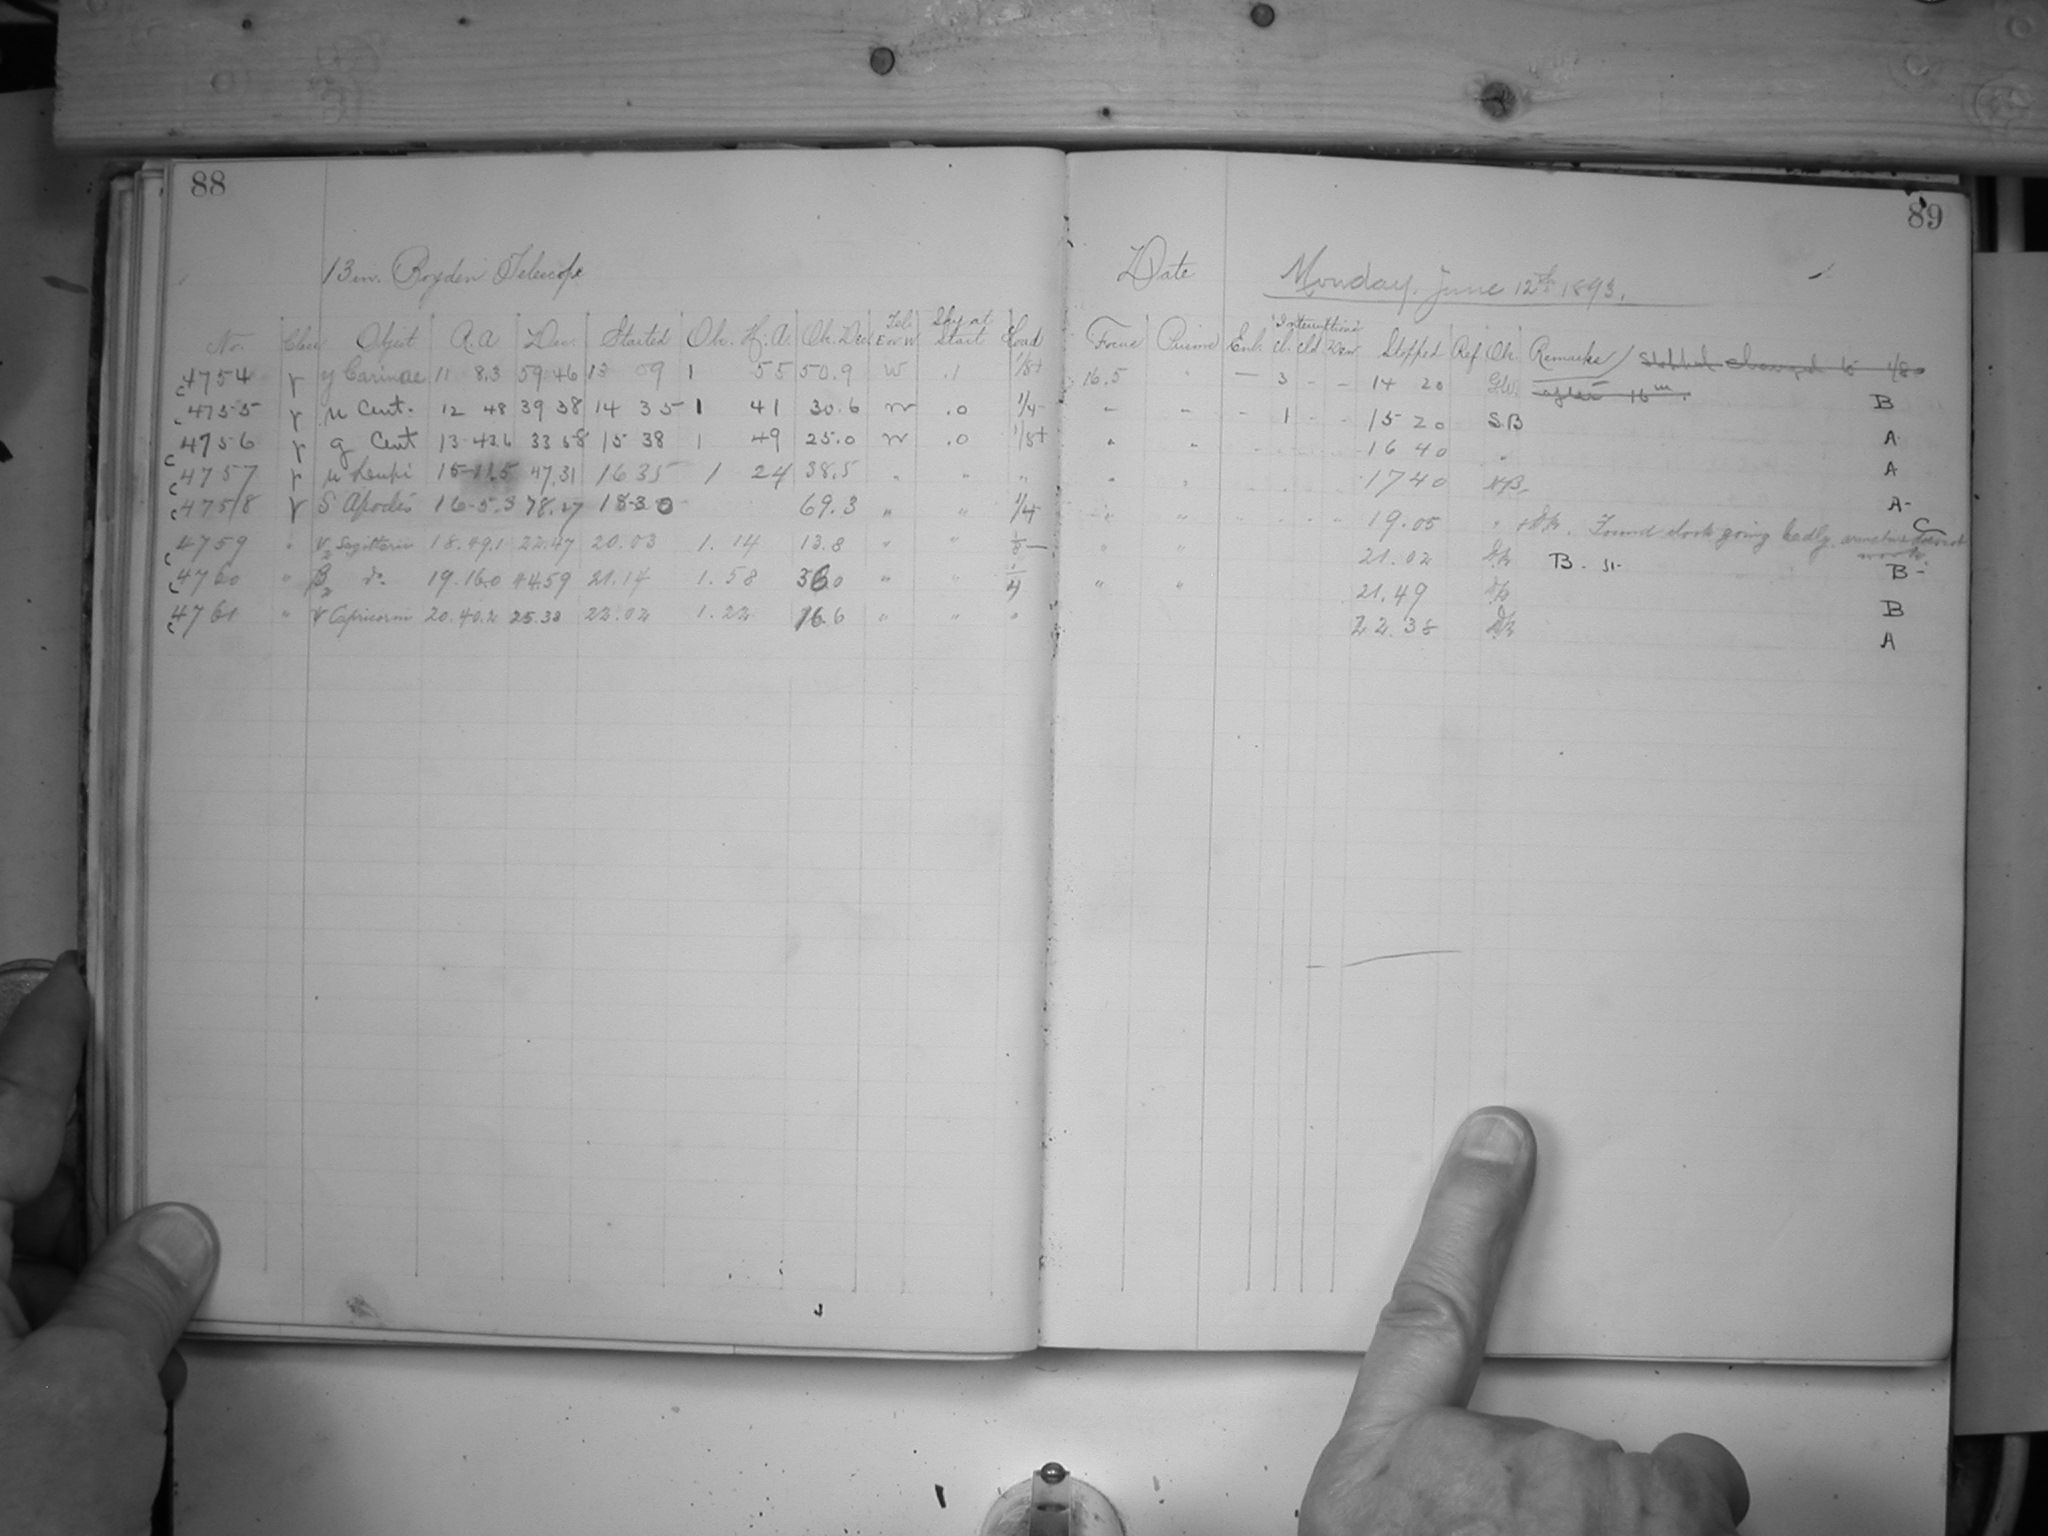 88
13 in. Boyden Telescope
No. Class Object R.A Dec. Started Ob. H.A. Ob. Dec. Tel. E or W Sky at Start Quad
4754 γ y Carinae 11 8.3 59 46 13 09 1 55 50.9 W .1 1/8+
4755 γ μ Cent. 12 48 39 38 14 35 1 41 30.6 W .0 1/4
4756 γ g Cent 13 43.6 33 58 15 38 1 49 25.0 W .0 1/8+
4757 γ μ Lupi 15 11.5 47.31 16 35 1 24 38.5 " " "
4758 γ S Apodis 16-5.3 78.27 18-30 69.3 " " 1/4
4759 " ν2 Sagittarii 18.49.1 22.47 20.03 1.14 13.8 " " 1/8 —
4760 " β2 do. 19.16.0 44.59 21.14 1.58 36.0 " " 1/4
4761 " ψ Capricorni 20.40.2 25.38 22.02 1.22 16.6 " " "
89
Date Monday. June 12th 1893.
Focus Prism Enl. Interruptions Cl. Cld Wew Stopped Ref. Ob. Remarks
16.5 " — 3 - - 14 20 changed to 1/8 after 16m. B
" " - 1 - - 15 20 SB A
" " 16 40 " A
" " 17 40 A-
" " 19.05 " Found clock going badly. C
work.
" " 21.02 B. B-
" " 21.49 B
22.38 A